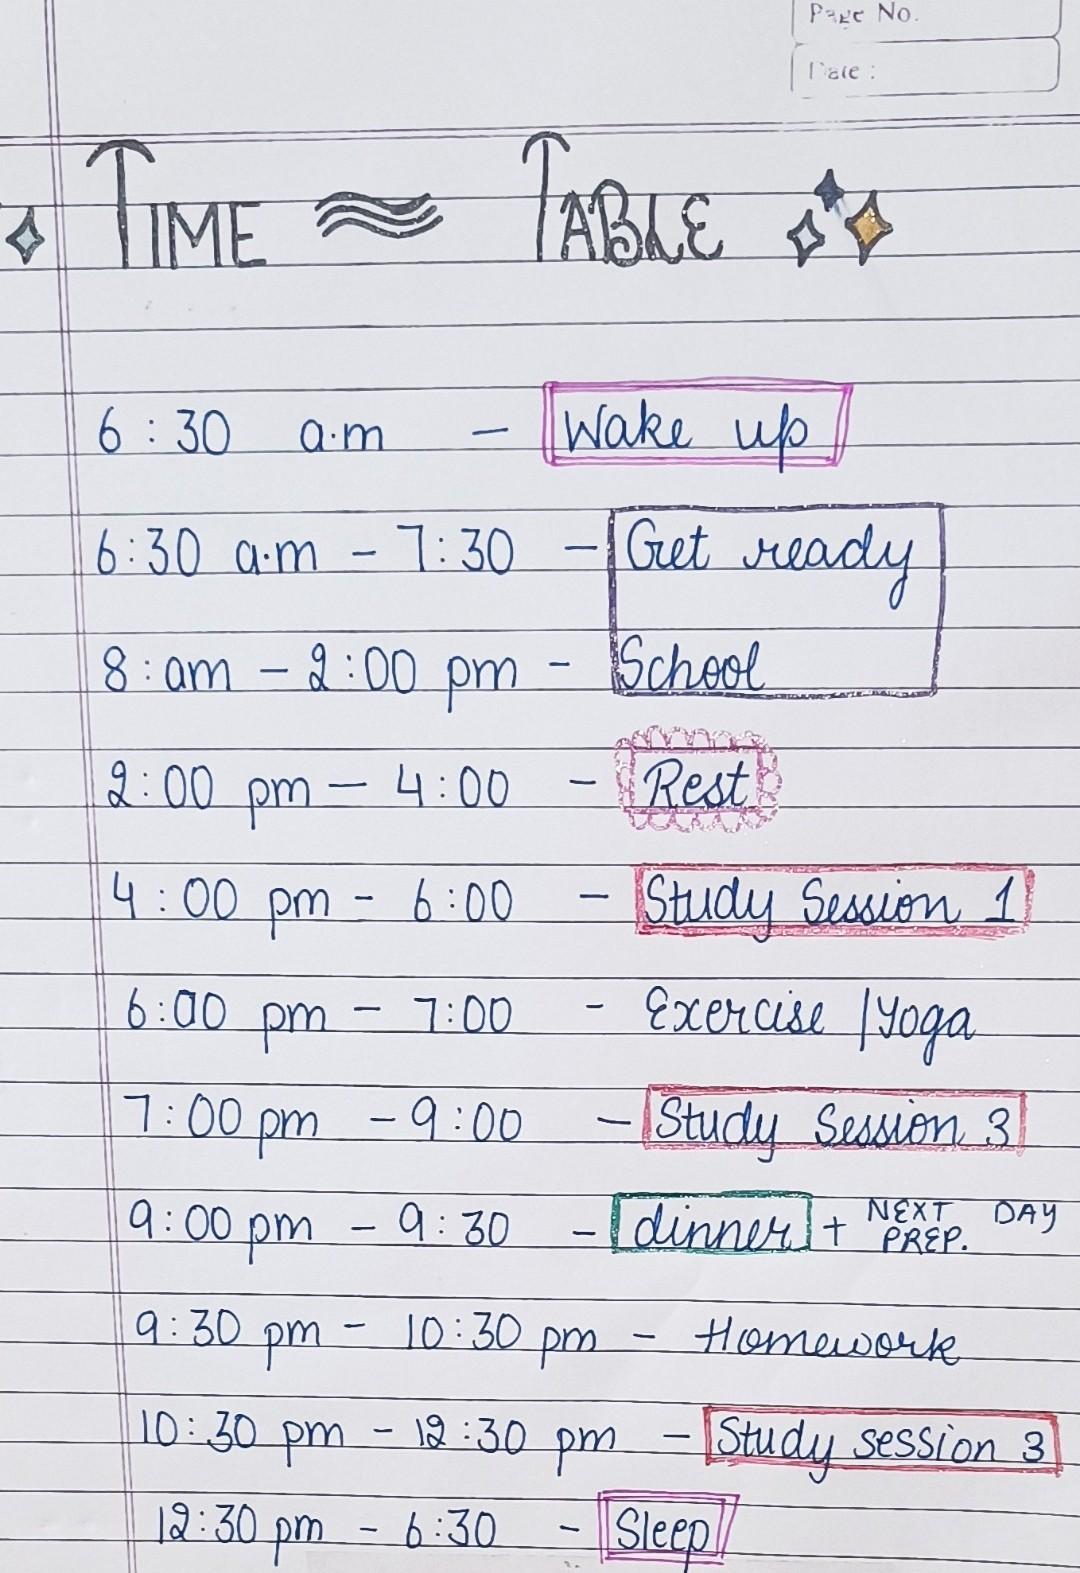 Page No.
Date :
TIME TABLE
6:30 a.m - Wake up
6:30 a.m - 7:30 - Get ready
8:am - 2:00 pm - School
2:00 pm - 4:00 - Rest
4:00 pm - 6:00 - Study Session 1
6:00 pm - 7:00 - Exercise / Yoga
7:00 pm - 9:00 - Study Session 3
9:00 pm - 9:30 - dinner + NEXT DAY PREP.
9:30 pm - 10:30 pm - Homework
10:30 pm - 12:30 pm - Study session 3
12:30 pm - 6:30 - Sleep